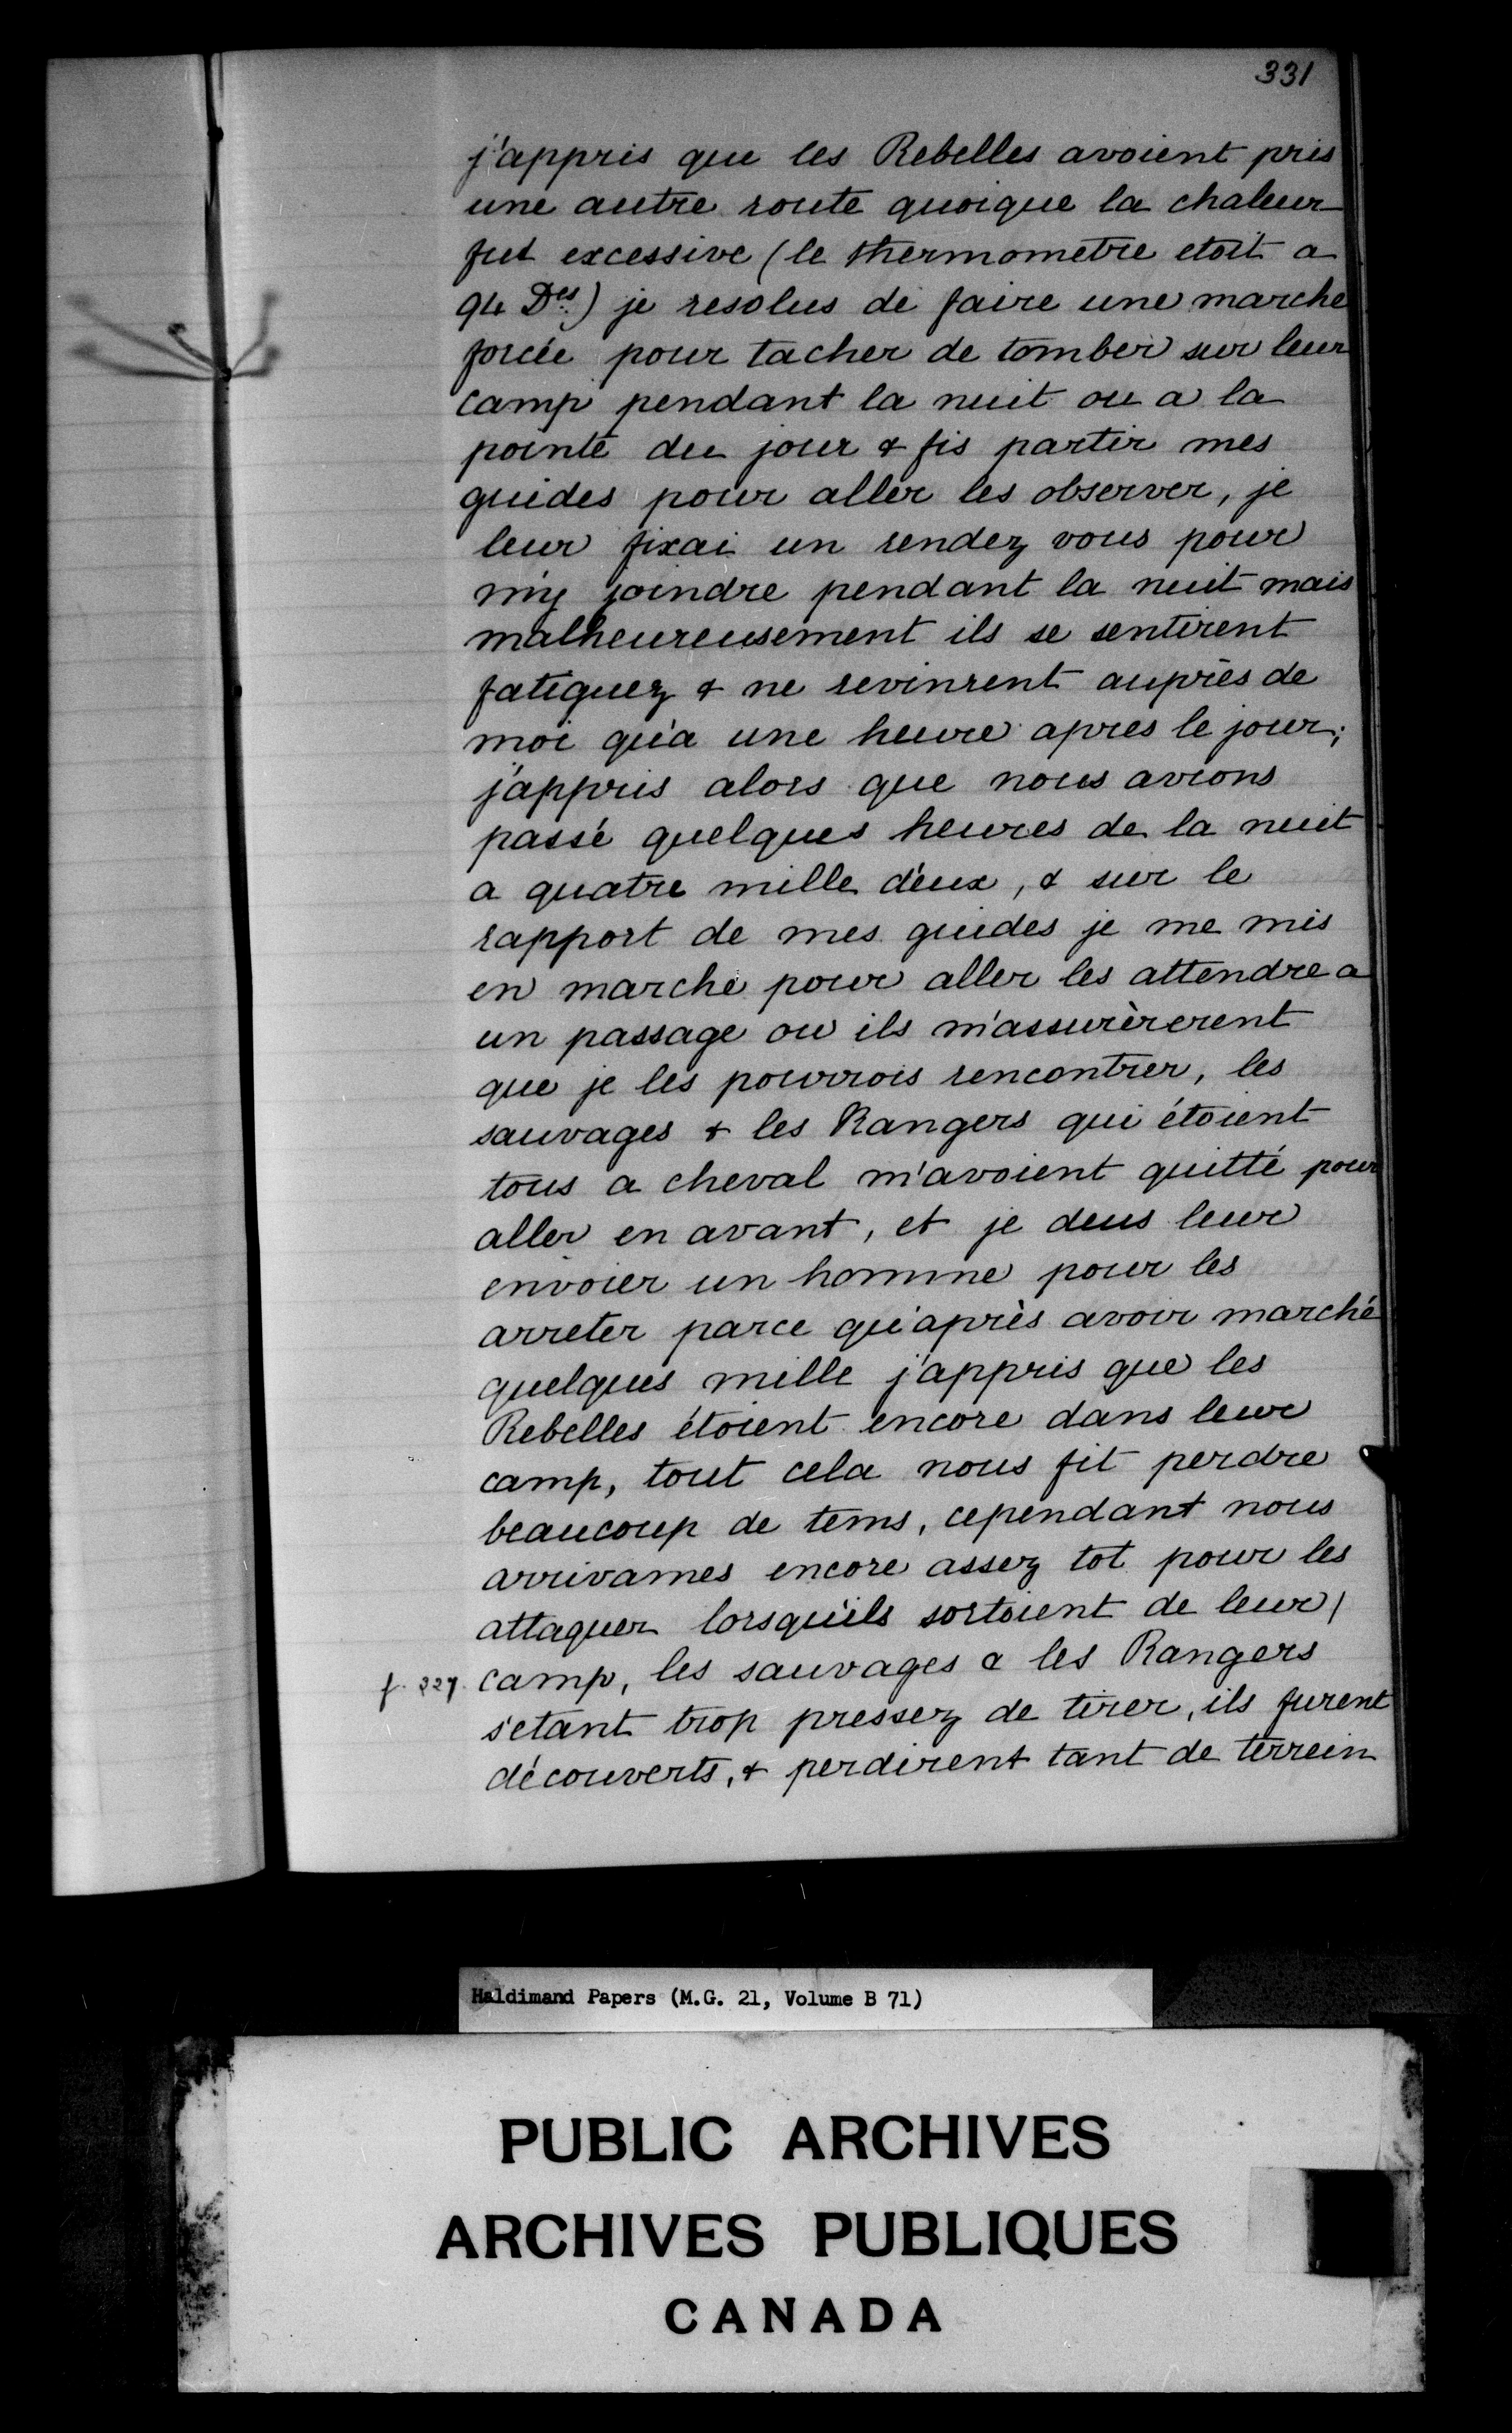 331
j'appris que les Rebelles avoient pris
une autre route quoique la chaleur
fut excessive (le thermometre etoit a
94 Des.) je resolus de faire une marche
forcée pour tacher de tomber sur leur
camp pendant la nuit ou a la
pointe du jour & fis partir mes
guides pour aller les observer, je
leur fixai un rendez vous pour
m'y joindre pendant la nuit mais
malheureusement ils se sentirent
fatiguez & ne revinrent auprès de
moi qu'a une heure apres le jour;
j'appris alors que nous avions
passé quelques heures de la nuit
a quatre mille d'eux, & sur le
rapport de mes guides je me mis
en marche pour aller les attendre a
un passage ou ils m'assurèrerent
que je les pourrois rencontrer, les
sauvages & les Rangers qui étoient
tous a cheval m'avoient quitté pour
aller en avant, et je deus leur
envoier un homme pour les
arreter parce qu'après avoir marché
quelques mille j'appris que les
Rebelles étoient encore dans leur
camp, tout cela nous fit perdre
beaucoup de tems, cependant nous
arrivames encore assez tot pour les
attaquer lorsqu'ils sortoient de leur /
f. 227. camp, les sauvages & les Rangers
s'etant trop pressez de tirer, ils furent
découverts, & perdirent tant de terrein
Haldimand Papers (M.G. 21, Volume B 71)
PUBLIC ARCHIVES
ARCHIVES PUBLIQUES
CANADA